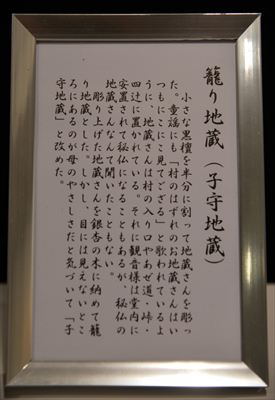 籠り地蔵（子守地蔵）
小さな黒檀を半分に割って地蔵さんを彫っ
た。童謡にも「村のはずれのお地蔵さんはい
つもにこにこ見てござる」と歌われているよ
うに、地蔵さんは村の入り口やあぜ道・峠・
四辻に置かれている。それに観音様は堂内に
安置されて秘仏になることもあるが、秘仏の
地蔵さんなんて聞いたこともない。
彫り上げた地蔵さんを銀杏の木に納めて籠
り地蔵とした。しかし、目には見えないとこ
ろにあるのが母のやさしさだと気づいて「子
守地蔵」と改めた。